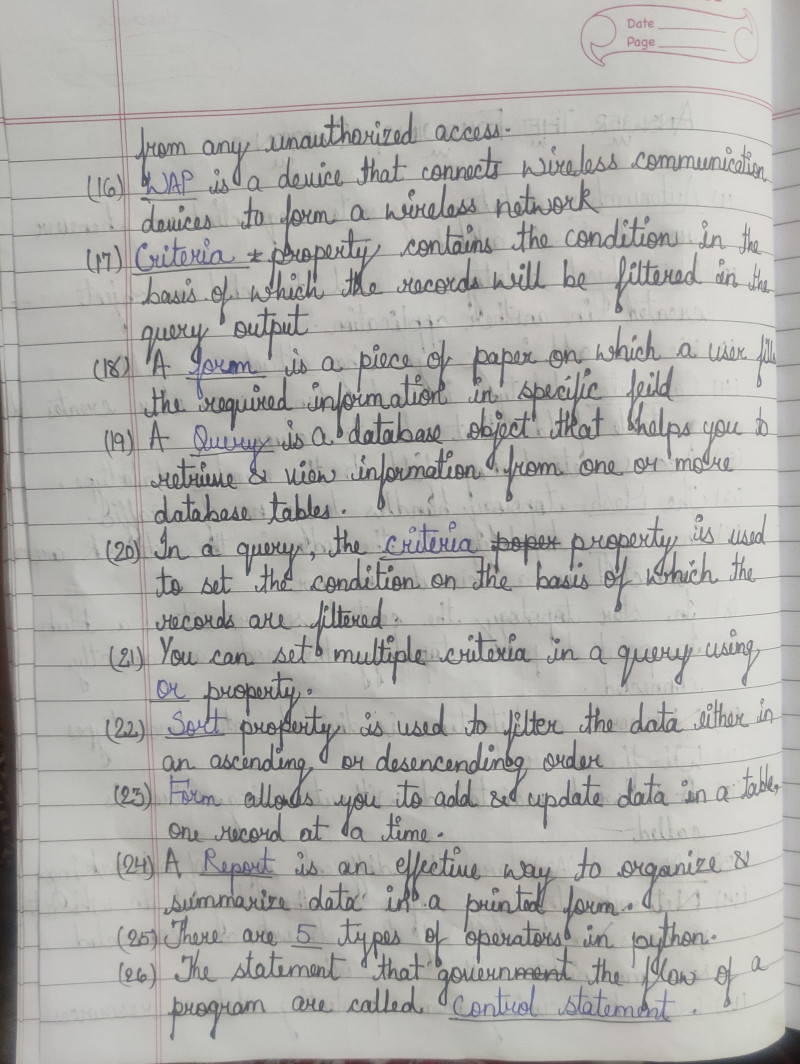 Date
Page
from any unauthorized access.
(16) WAP is a device that connects wireless communication
devices to form a wireless network
(17) Criteria property contains the condition in the
basis of which the records will be filtered in the
query output
(18) A form is a piece of paper on which a user fills
the required information in specific feild
(19) A Query is a database object that helps you to
retrieve & view information from one or more
database tables.
(20) In a query, the criteria property is used
to set the condition on the basis of which the
records are filtered.
(21) You can set multiple criteria in a query using
or property.
(22) Sort property is used to filter the data either in
an ascending or desencending order
(23) Form allows you to add & update data in a table,
one record at a time.
(24) A Report is an effective way to organize &
summarize data in a printed form.
(25) There are 5 types of operators in python.
(26) The statement that government the flow of a
program are called Control statement.